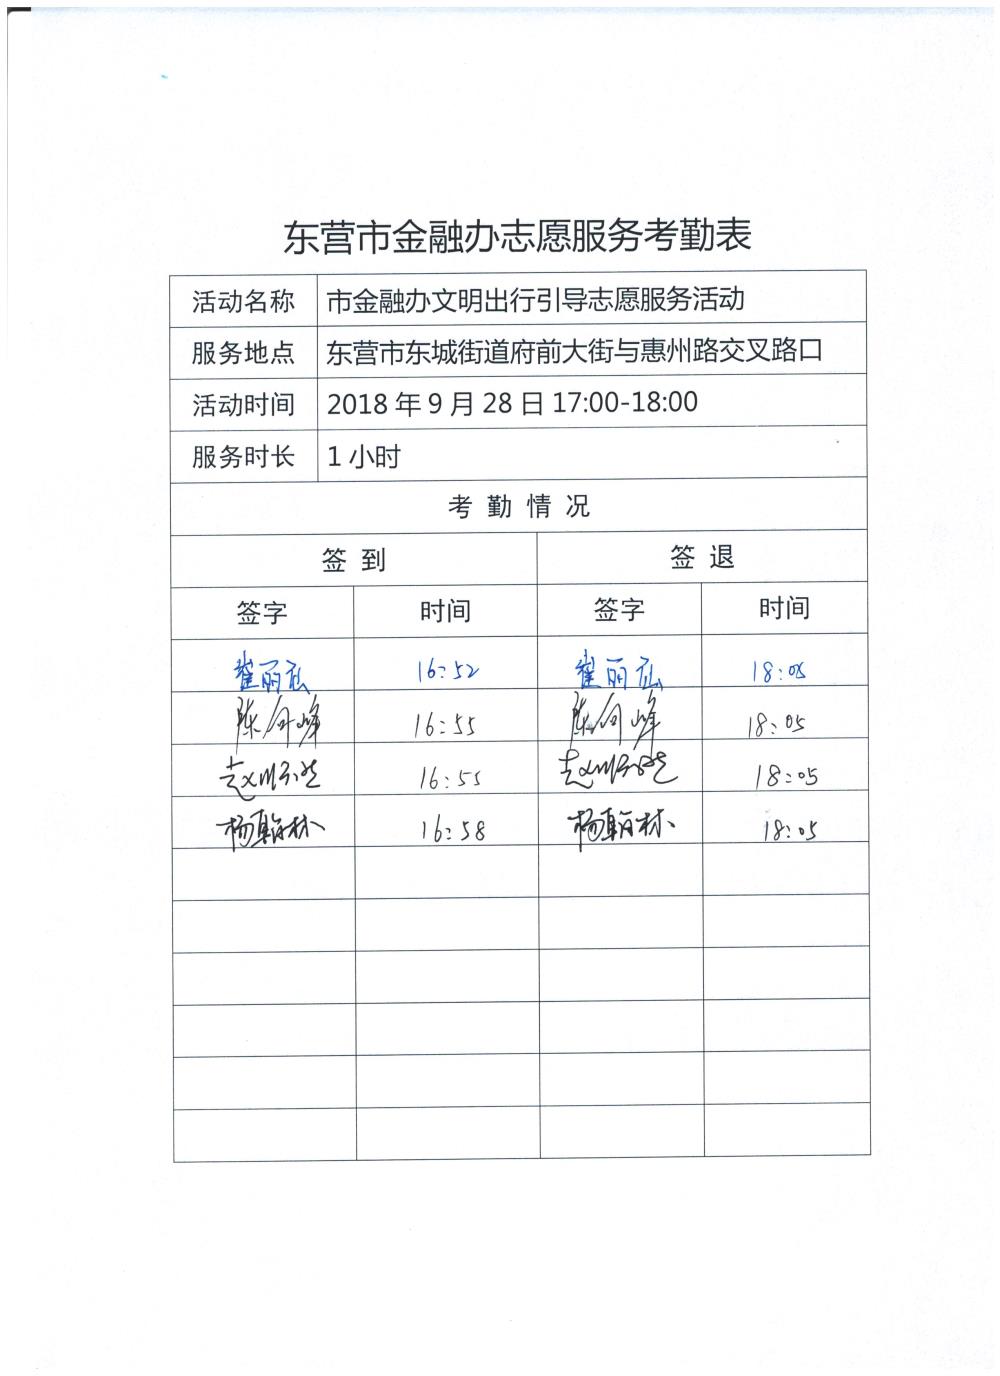 东营市金融办志愿服务考勤表
活动名称 市金融办文明出行引导志愿服务活动
服务地点 东营市东城街道府前大街与惠州路交叉路口
活动时间 2018年9月28日17:00-18:00
服务时长 1小时
考勤情况
签到 签退
签字 时间 签字 时间
崔丽 16:52 崔丽 18:05
陈向峰 16:55 陈向峰 18:05
赵 16:55 赵 18:05
杨翰林 16:58 杨翰林 18:05